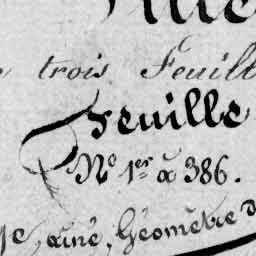 trois Feuill
Feuille
N° 1er à 386.
aîné, Géomètre d